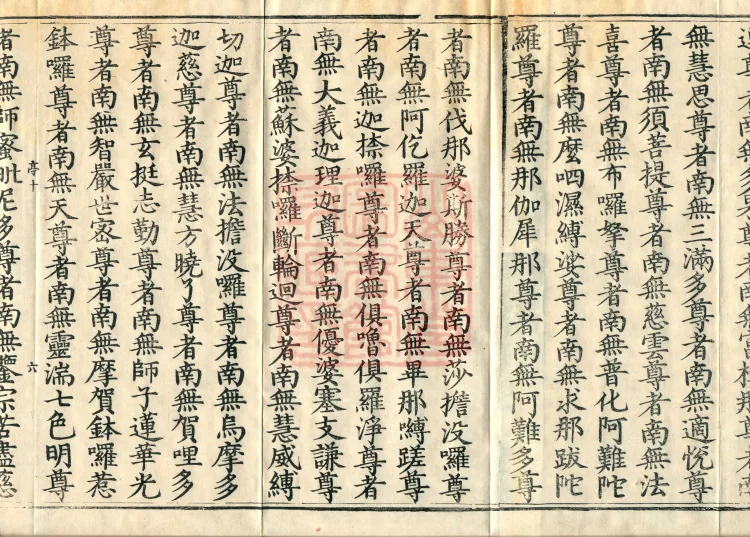 無慧思尊者南無三滿多尊者南無適悅尊
者南無須菩提尊者南無慈雲尊者南無法
喜尊者南無布囉拏尊者南無普化阿難陀
尊者南無麼呬濕縛娑尊者南無求那跋陀
羅尊者南無那伽犀那尊者南無阿難多尊
者南無伐那婆斯勝尊者南無莎擔没囉尊
者南無阿仡羅迦天尊者南無畢那縛蹉尊
者南無迦捺囉尊者南無俱嚕俱羅淨尊者
南無大義迦理迦尊者南無優婆塞支謙尊
者南無蘇婆捺囉斷輪迴尊者南無慧威縛
切迦尊者南無法擔没囉尊者南無烏摩多
迦慈尊者南無慧方曉了尊者南無賀哩多
尊者南無玄挺志勤尊者南無師子蓮華光
尊者南無智嚴世宻尊者南無摩賀鉢囉惹
鉢囉尊者南無天尊者南無靈湍七色明尊
亭十 六
者南無師蜜毗尼多尊者南無鑒宗苦盡慈